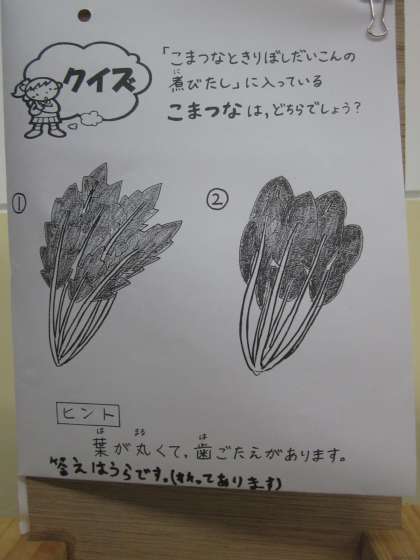 クイズ
「こまつなときりぼしだいこんの
煮びたし」に入っている
こまつなは、どちらでしょう?
① ②
ヒント
葉が丸くて、歯ごたえがあります。
答えはうらです。(はってあります)